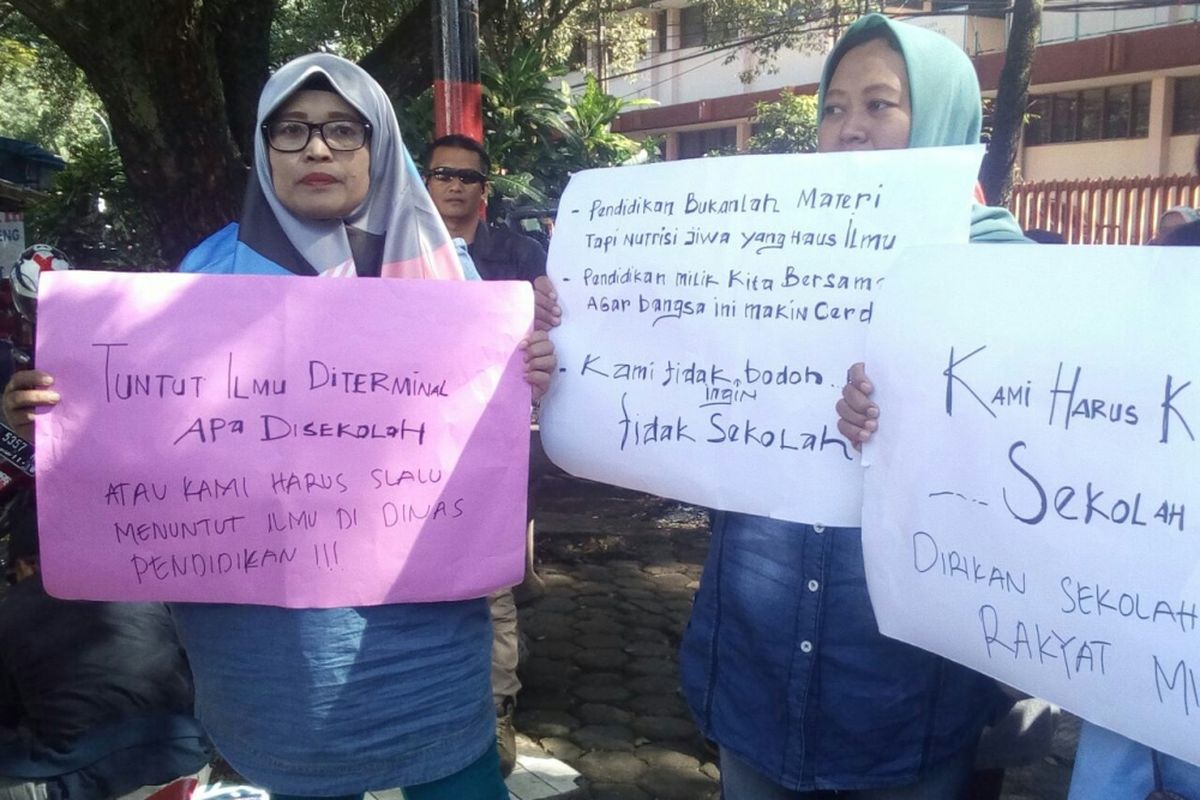 TUNTUT ILMU DITERMINAL
APA DISEKOLAH
ATAU KAMI HARUS SLALU
MENUNTUT ILMU DI DINAS
PENDIDIKAN !!!
- Pendidikan Bukanlah Materi
Tapi Nutrisi Jiwa yang Haus Ilmu
- Pendidikan milik Kita Bersama
Agar bangsa ini makin Cerd
- Kami tidak bodoh..
ingin
tidak Sekolah
KAMI HARUS K
---- SEKOLAH
DIRIKAN SEKOLAH
RAKYAT MI
ENG
5357